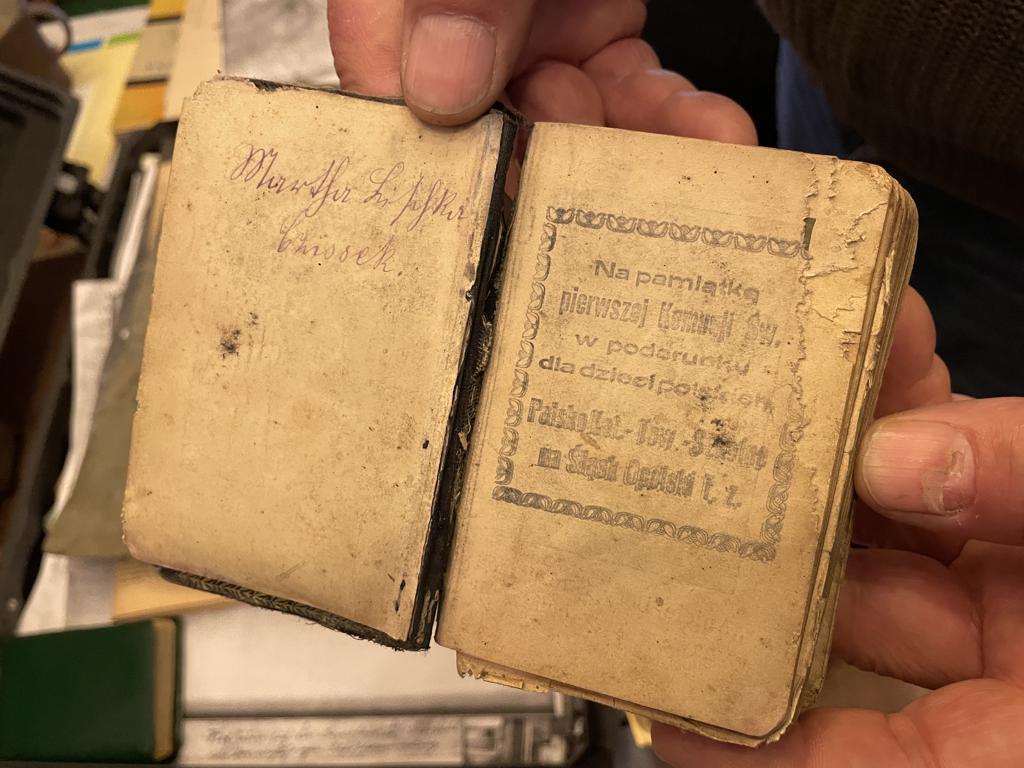 Martha Lischka
Chiosek.
Na pamiątkę
pierwszej Komunji Św.
w podarunku
dla dzieci polskich
Polsko Kat. - Tow. -
na Śląsk Opolski T. z.